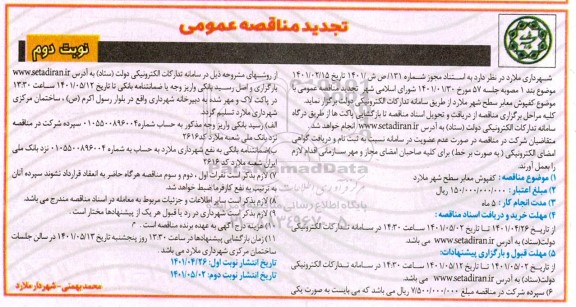 تجدید مناقصه عمومی
نوبت دوم
شهرداری ملارد در نظر دارد به استناد مجوز شماره ۱۳۱/ص ش /۱۴۰۱ تاریخ ۱۴۰۱/۰۲/۱۵
موضوع بند ۱ مصوبه جلسه ۵۷ مورخ ۱۴۰۱/۰۱/۳۰ شورای اسلامی شهر تجدید مناقصه عمومی با
موضوع کفپوش معابر سطح شهر ملارد از طریق سامانه تدارکات الکترونیکی دولت برگزار نماید.
کلیه مراحل برگزاری مناقصه از دریافت و تحویل اسناد مناقصه تا بازگشایی پاکت ها از طریق درگاه
سامانه تدارکات الکترونیکی دولت (ستاد) به آدرس www.setadiran.ir انجام خواهد شد.
متقاضیان شرکت در مناقصه در صورت عدم عضویت در سامانه نسبت به ثبت نام و دریافت گواهی
امضای الکترونیکی (به صورت بر خط) برای کلیه صاحبان امضای مجاز و مهر سازمانی اقدام لازم
را بعمل آورند.
۱) موضوع مناقصه: کفپوش معابر سطح شهر ملارد
۲) مبلغ اعتبار: ۱۵۰/۰۰۰/۰۰۰/۰۰۰ ریال
۳) مدت انجام کار: ۵ ماه
۴) مهلت خرید و دریافت اسناد مناقصه:
از تاریخ ۱۴۰۱/۰۴/۲۶ تا تاریخ ۱۴۰۱/۰۵/۰۲ ساعت ۱۴:۳۰ در سامانه تدارکات الکترونیکی
دولت (ستاد) به آدرس www.setadiran.ir می باشد
۵) مهلت قبول و بارگزاری پیشنهادات:
از تاریخ ۱۴۰۱/۰۵/۰۲ تا تاریخ ۱۴۰۱/۰۵/۱۲ ساعت ۱۴:۳۰ در سامانه تدارکات الکترونیکی
دولت (ستاد) به آدرس www.setadiran.ir می باشد
۶) سپرده شرکت در مناقصه مبلغ ۷/۵۰۰/۰۰۰/۰۰۰ ریال می باشد که می بایست به صورت یکی
از روشهای مشروحه ذیل در سامانه تدارکات الکترونیکی دولت (ستاد) به آدرس www.setadiran.ir
بارگزاری و اصل رسید بانکی واریز وجه یا ضمانتنامه بانکی تا تاریخ ۱۴۰۱/۰۵/۱۲ تا ساعت ۱۳:۳۰
در پاکت لاک و مهر شده به دبیرخانه شهرداری واقع در بلوار رسول اکرم (ص)، ساختمان مرکزی
شهرداری ملارد تسلیم گردد.
الف) رسید بانکی واریز وجه مذکور به حساب شماره ۰۱۰۵۵۰۰۸۹۶۰۰۴ سپرده شرکت در مناقصه
نزد بانک ملی شعبه ملارد کد ۲۶۱۶
ب) ضمانتنامه بانکی به نفع شهرداری ملارد به حساب به شماره ۰۱۰۵۵۰۰۸۹۶۰۰۴ نزد بانک ملی
ایران شعبه ملارد کد ۲۶۱۶
۷) لازم بذکر است نفرات اول، دوم و سوم مناقصه هرگاه حاضر به انعقاد قرارداد نشوند سپرده آنان
به ترتیب به نفع کارفرما ضبط خواهد شد.
۸) لازم بذکر است سایر اطلاعات و جزئیات مربوط به معامله در اسناد مناقصه مندرج می باشد.
۹) لازم بذکر است شهرداری در رد یا قبول هر یک از پیشنهادها مختار است.
۱۰) هزینه درج آگهی به عهده برنده مناقصه است.
۱۱) زمان بازگشایی پیشنهادها در ساعت ۱۳:۳۰ روز پنجشنبه تاریخ ۱۴۰۱/۰۵/۱۳ در سالن جلسات
ساختمان مرکزی شهرداری ملارد می باشد.
تاریخ انتشار نوبت اول: ۱۴۰۱/۰۴/۲۶
تاریخ انتشار نوبت دوم: ۱۴۰۱/۰۵/۰۲
محمد بهمنی- شهردار ملارد